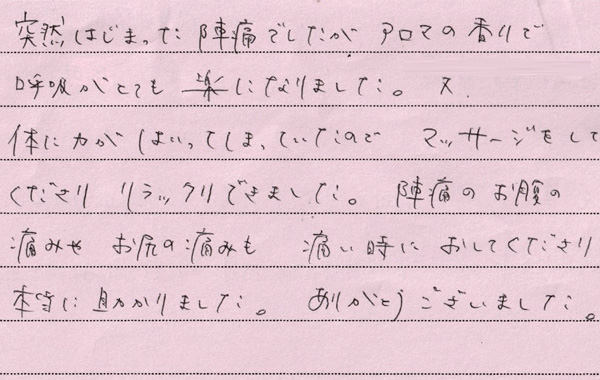 突然はじまった陣痛でしたが アロマの香りで
呼吸がとても 楽になりました。又、
体に力が はいってしまっていたので マッサージをして
くださり リラックリできました。 陣痛のお腹の
痛みや お尻の痛みも 痛い時に おしてくださり
本当に助かりました。 ありがとうございました。